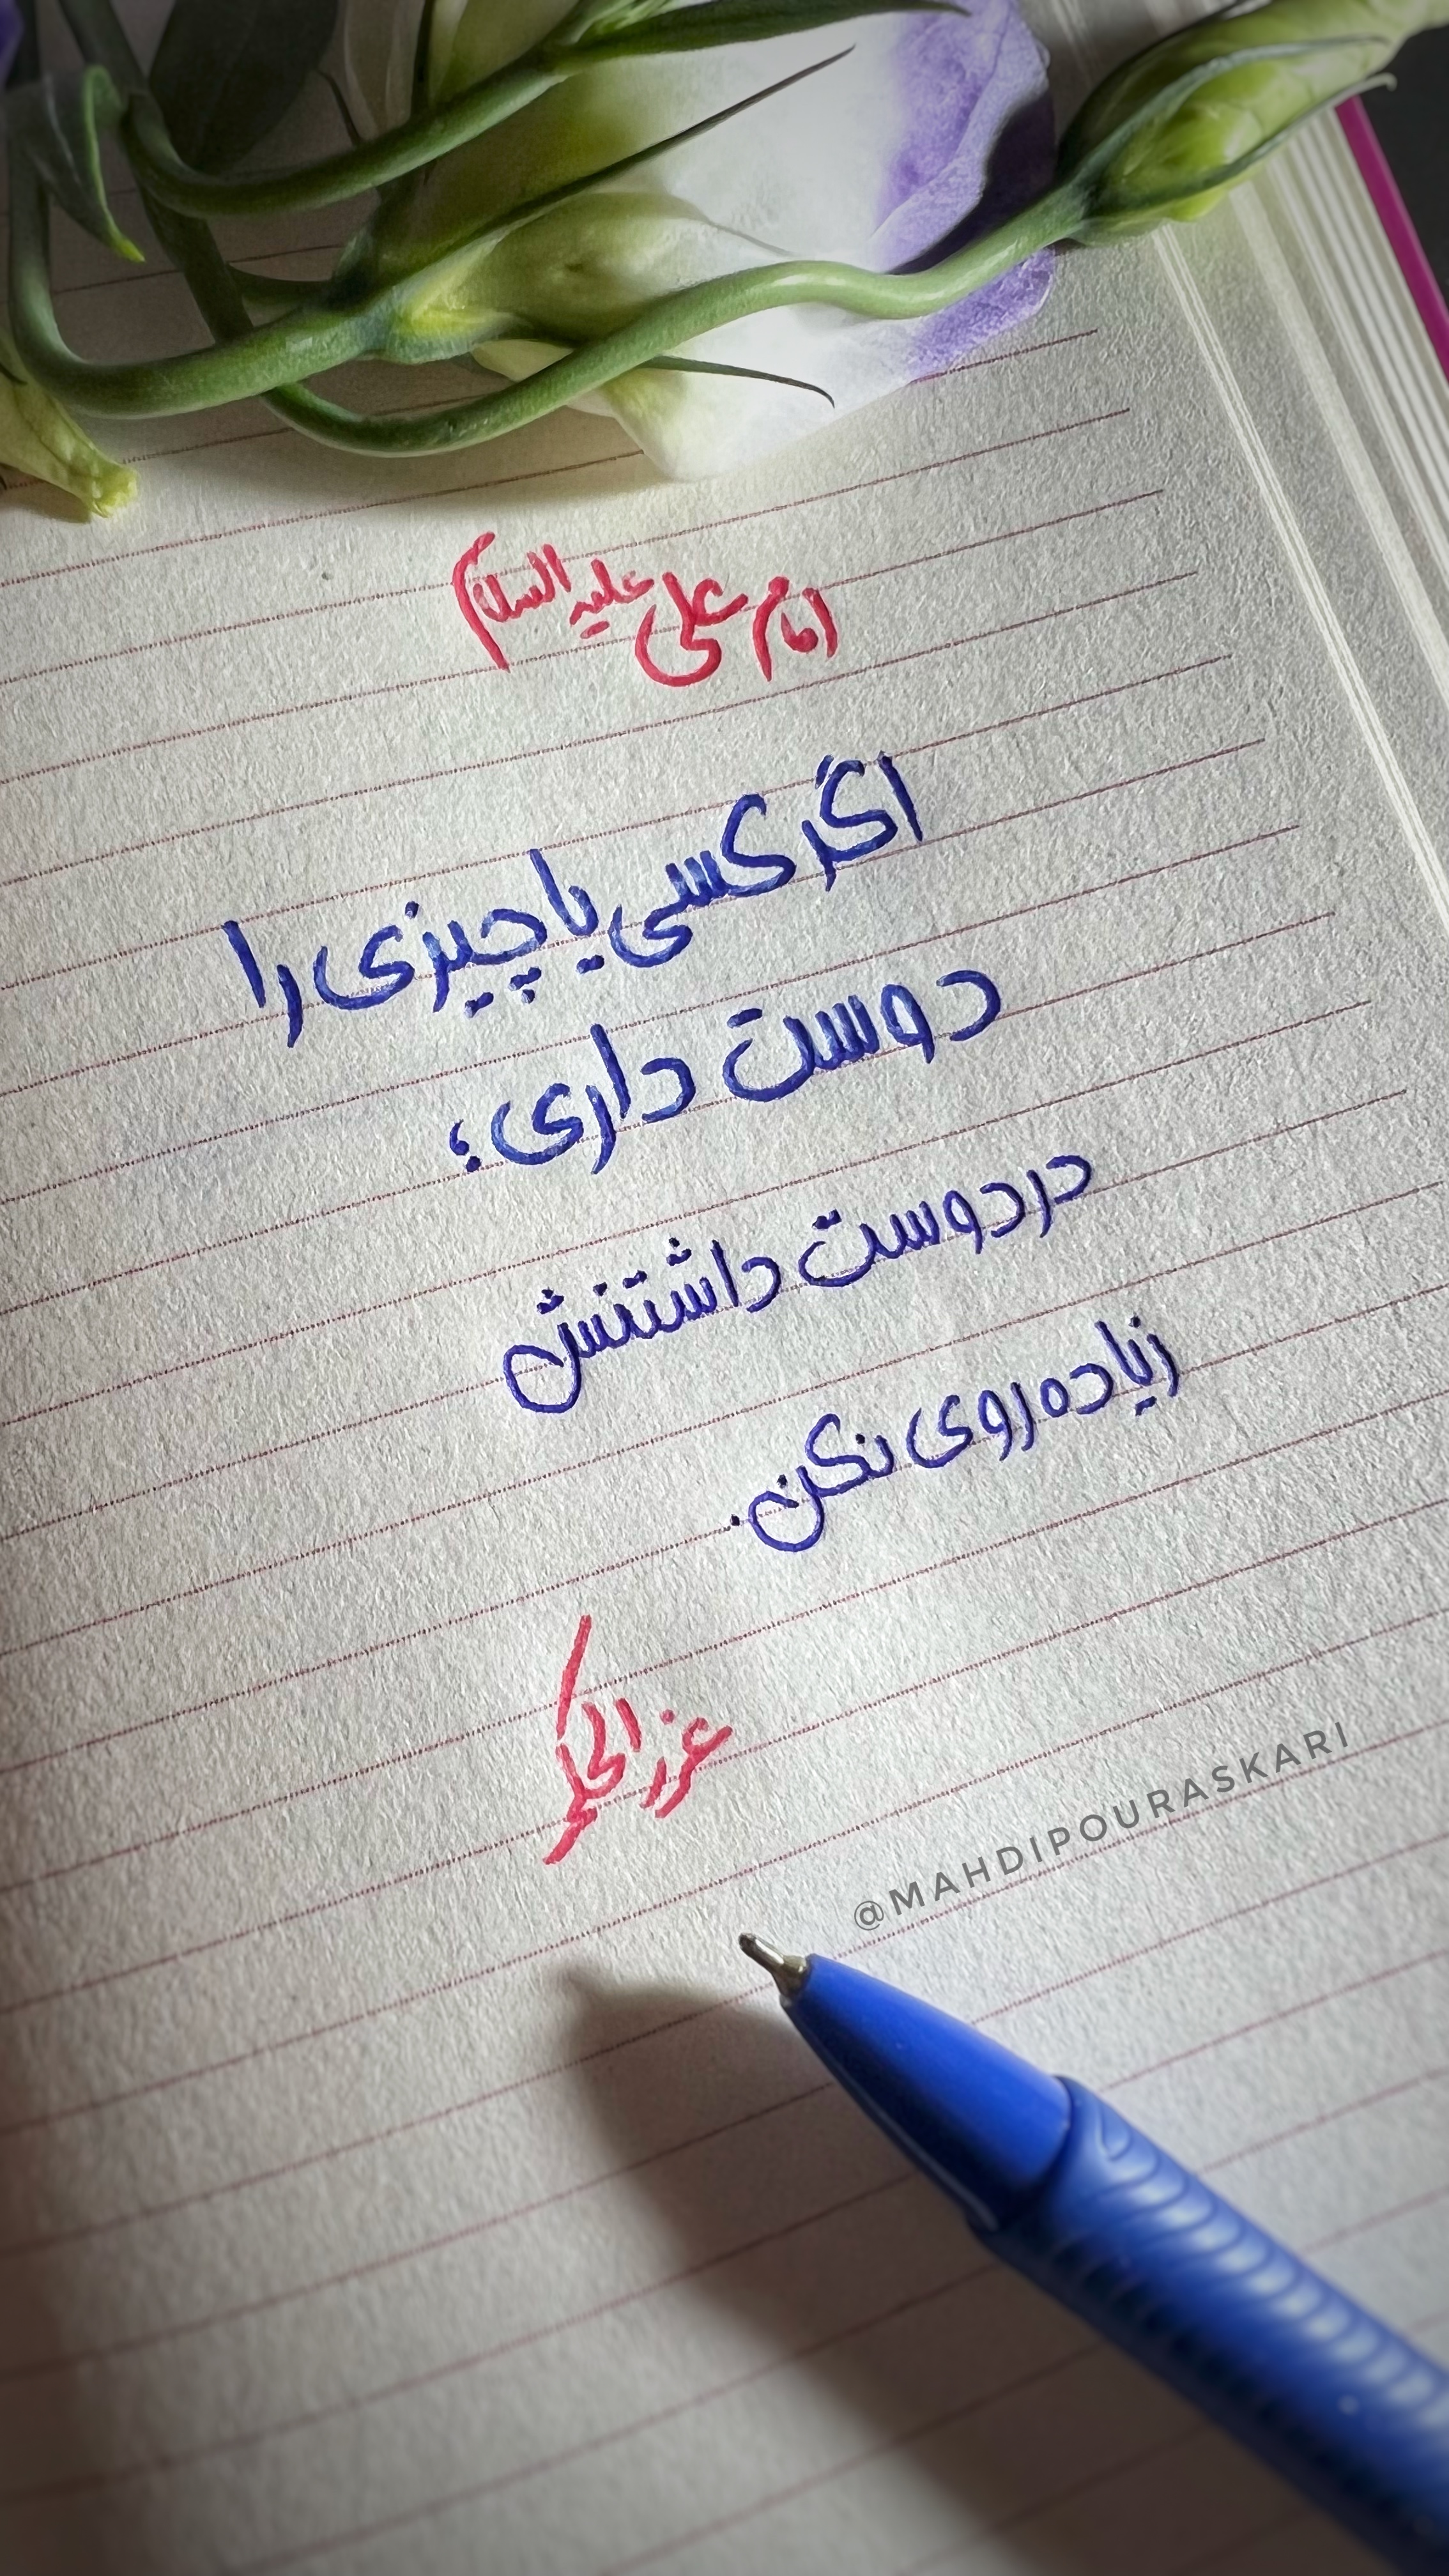 امام علی علیه السلام
اگر کسی یا چیزی را
دوست داری؛
در دوست داشتنش
زیاده روی نکن.
غرر الحکم
@MAHDIPOURASKARI